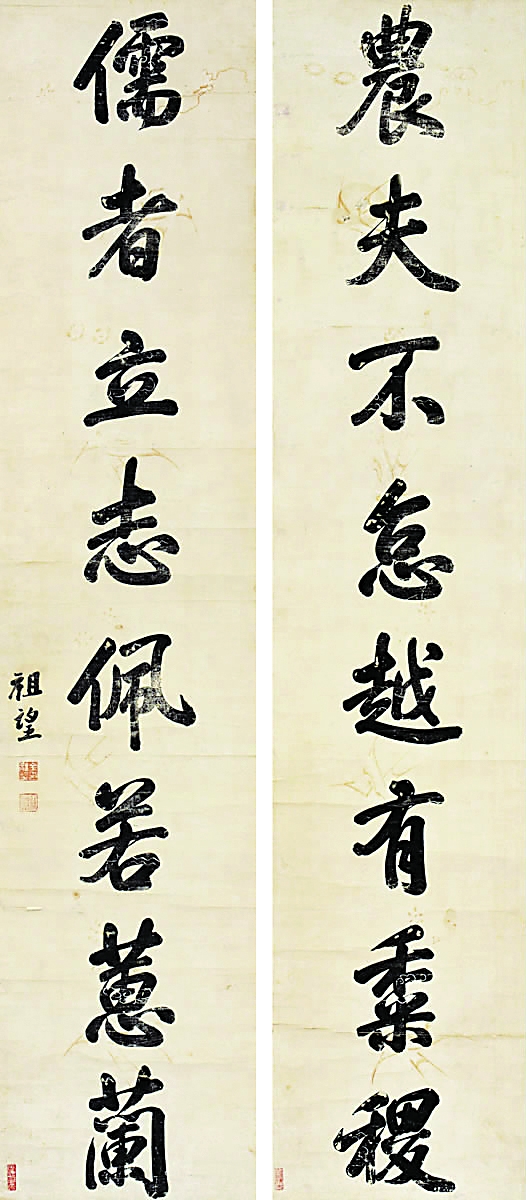 農夫不怠越有黍稷
儒者立志佩若蕙蘭
祖望